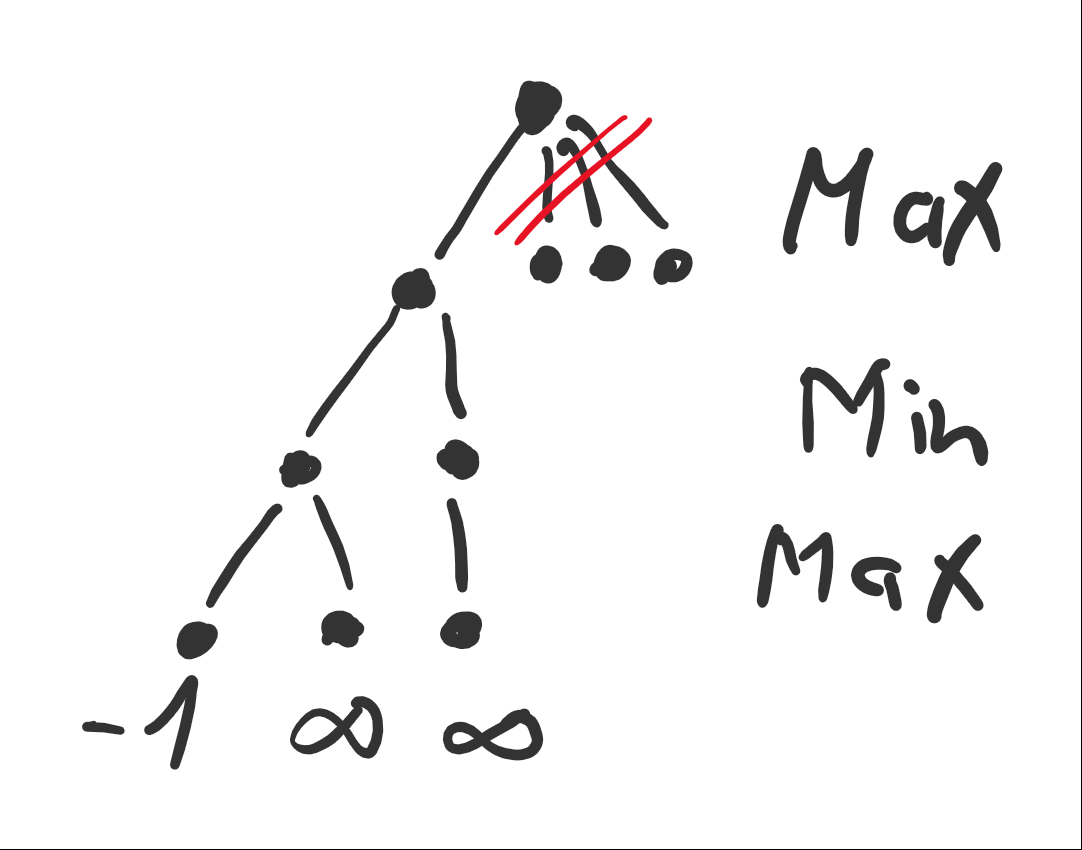 Max
Min
Max
-1 ∞ ∞